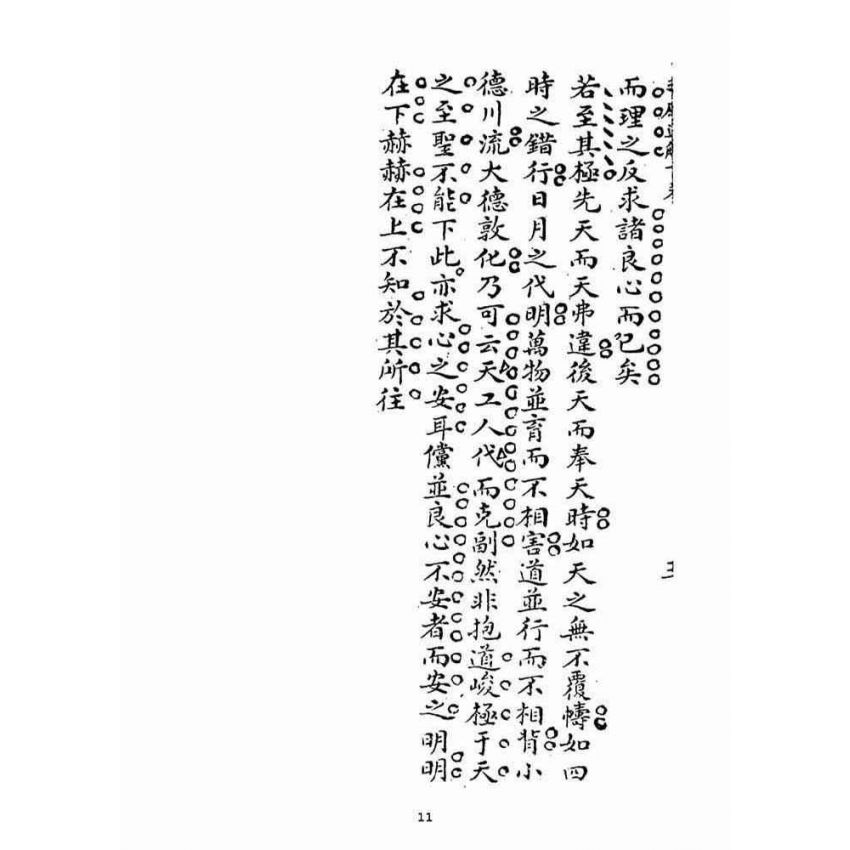 而理之反求諸良心而已矣
若至其極先天而天弗違後天而奉天時如天之無不覆幬如四
時之錯行日月之代明萬物並育而不相害道並行而不相背小
德川流大德敦化乃可云天工人代而克副然非抱道峻極于天
之至聖不能下此亦求心之安耳儻並良心不安者而安之明明
在下赫赫在上不知於其所往
11